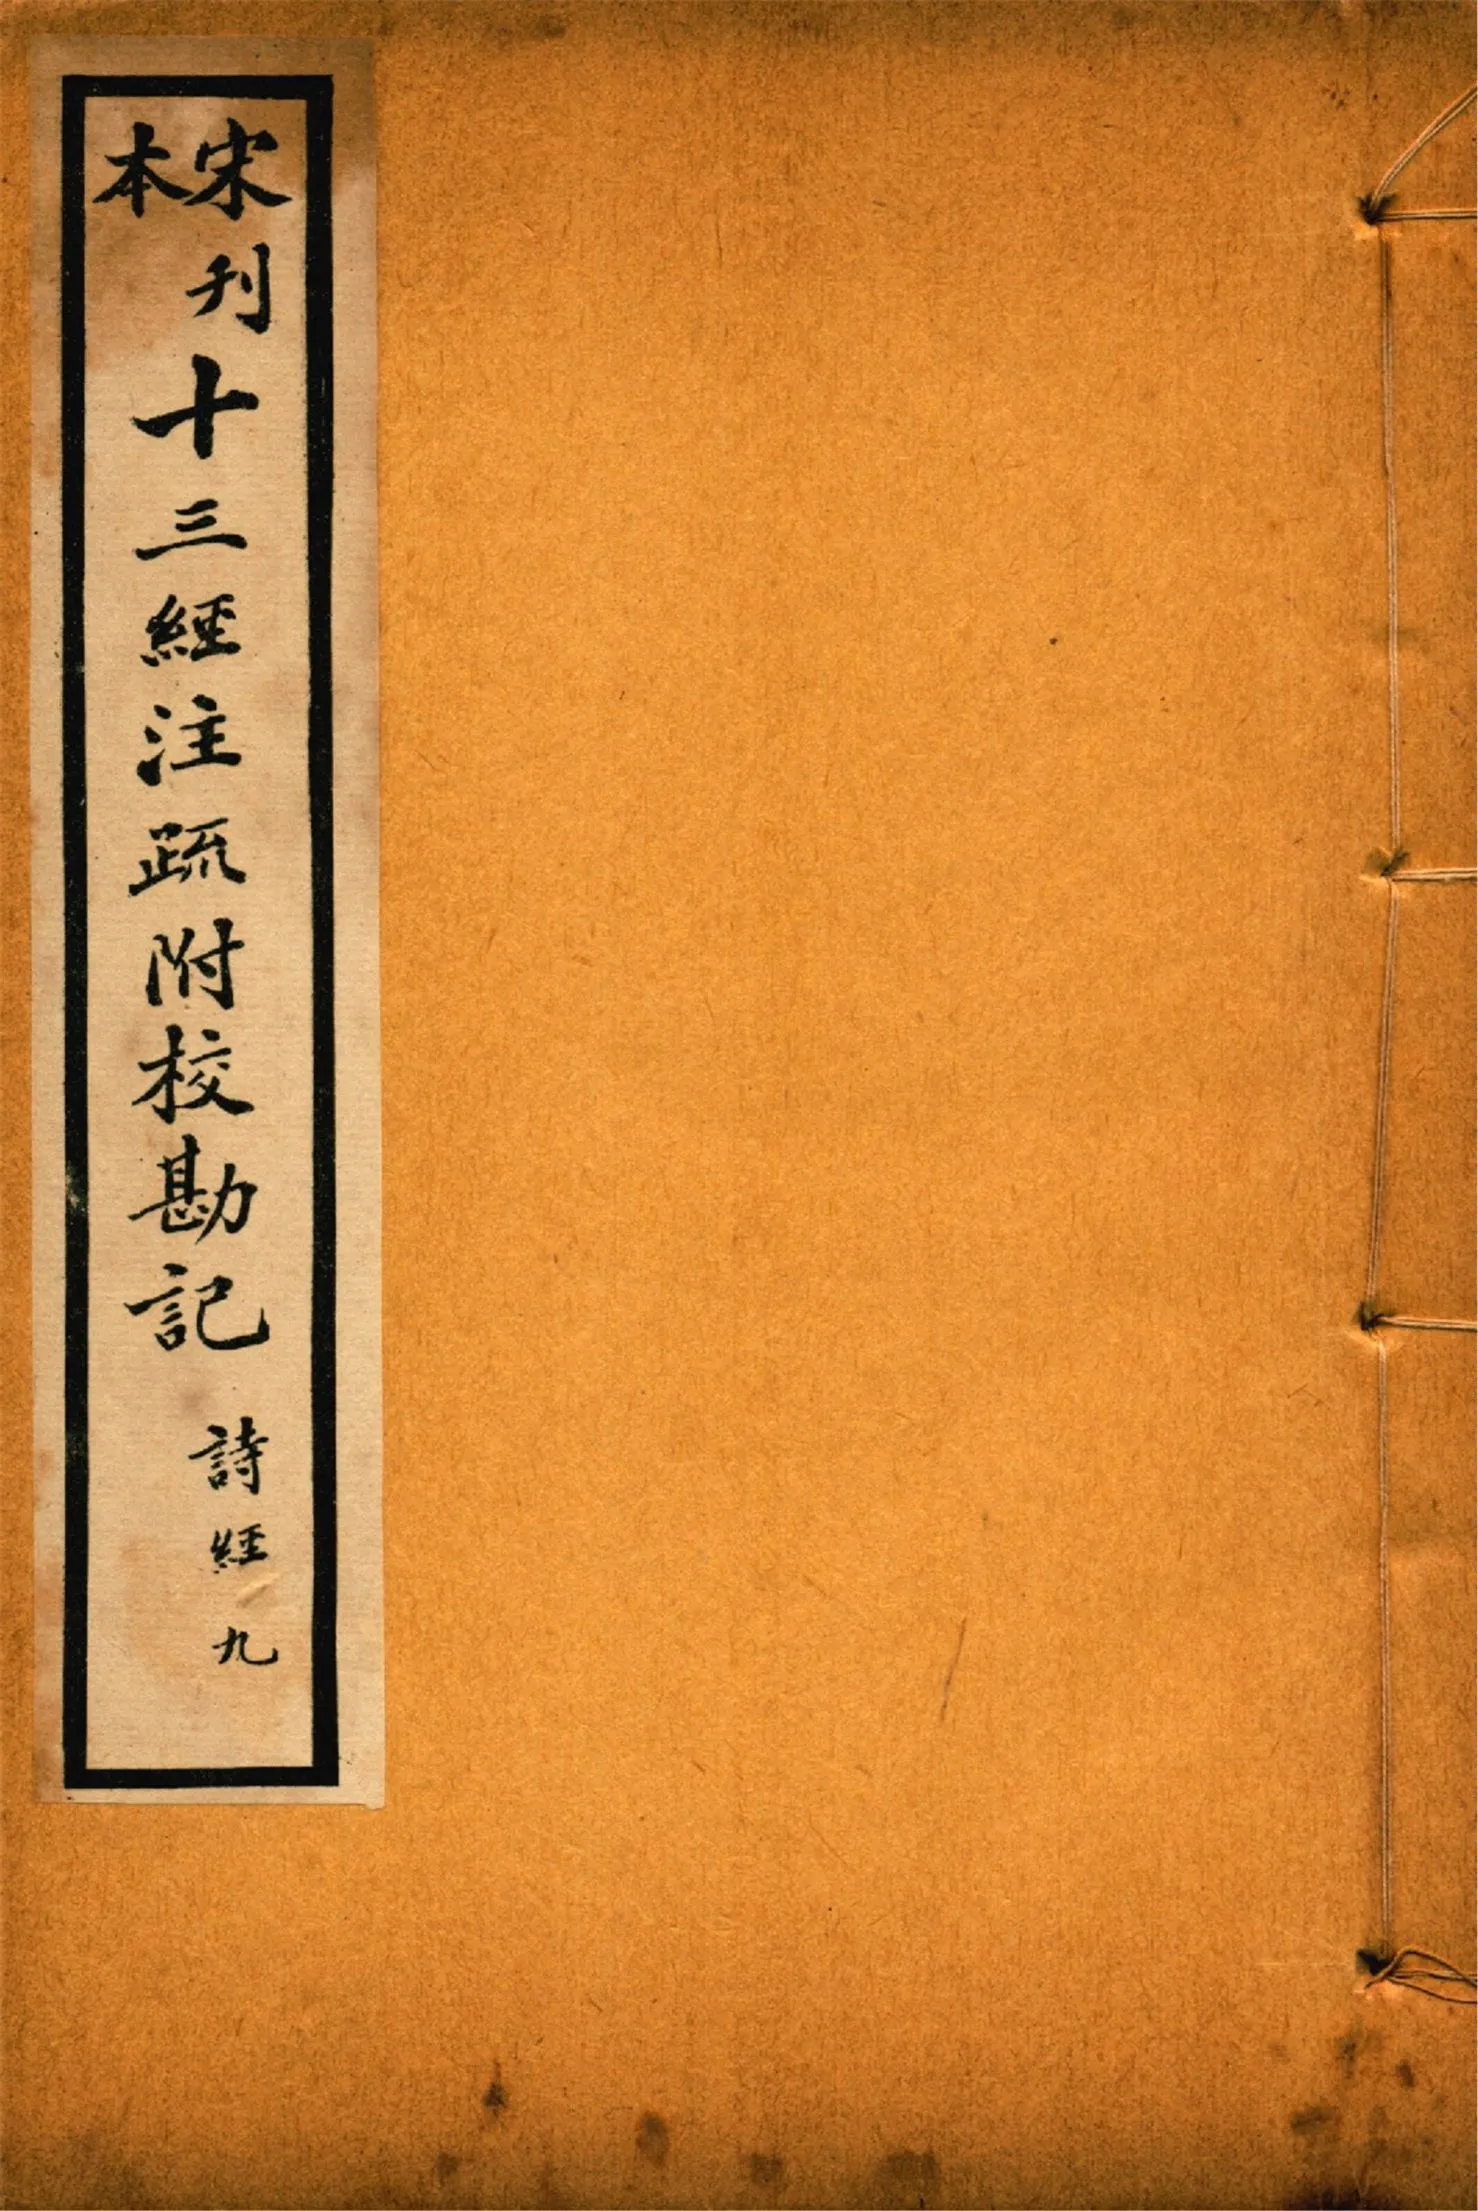 宋刊本十三經注疏附校勘記
詩經 九